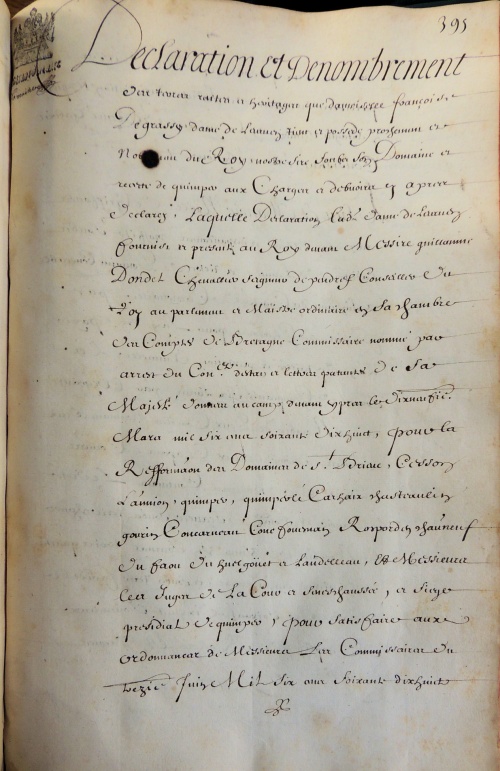 395
Declaration et Denombrement
Des terres rentes et heritages que damoiselle françoise
Degrasse dame de Launay tient et possede prochement et
No du Roy nostre sire, soubz son Domaine et
recepte de quimper aux Charges et debvoirs cy apres
Declarez, Laquelle Declaration lad. dame de Launay
fournist et presente au Roy devant Messire guillaume
Dondel Chevallier seigneur de pendref Conseiller du
Roy au parlement et Maistre ordinaire en sa chambre
des Comptes de Bretagne Commissaire nommé par
arrest du Con.el destat et lettres patantes de sa
Majesté donnée au camp devant ypres le dixneufie.
Mars mil six ans soixante dixhuict, pour la
Refformaon des Domaines de s.t Brieuc, Cesson
Lannion, quimper, quimperlé Carhaix chasteaulin
gourin Concarneau Fouesnan Rosporden chauneuf
du faou du huelgöuet et Landelleau, et Messieurs
les Juges de La Cour et seneschaussée, et siege
presidial de quimper, pour satisfaire aux
ordonnances de Messieurs Les Commissaires du
Juin Mil six ans soixante dixhuict